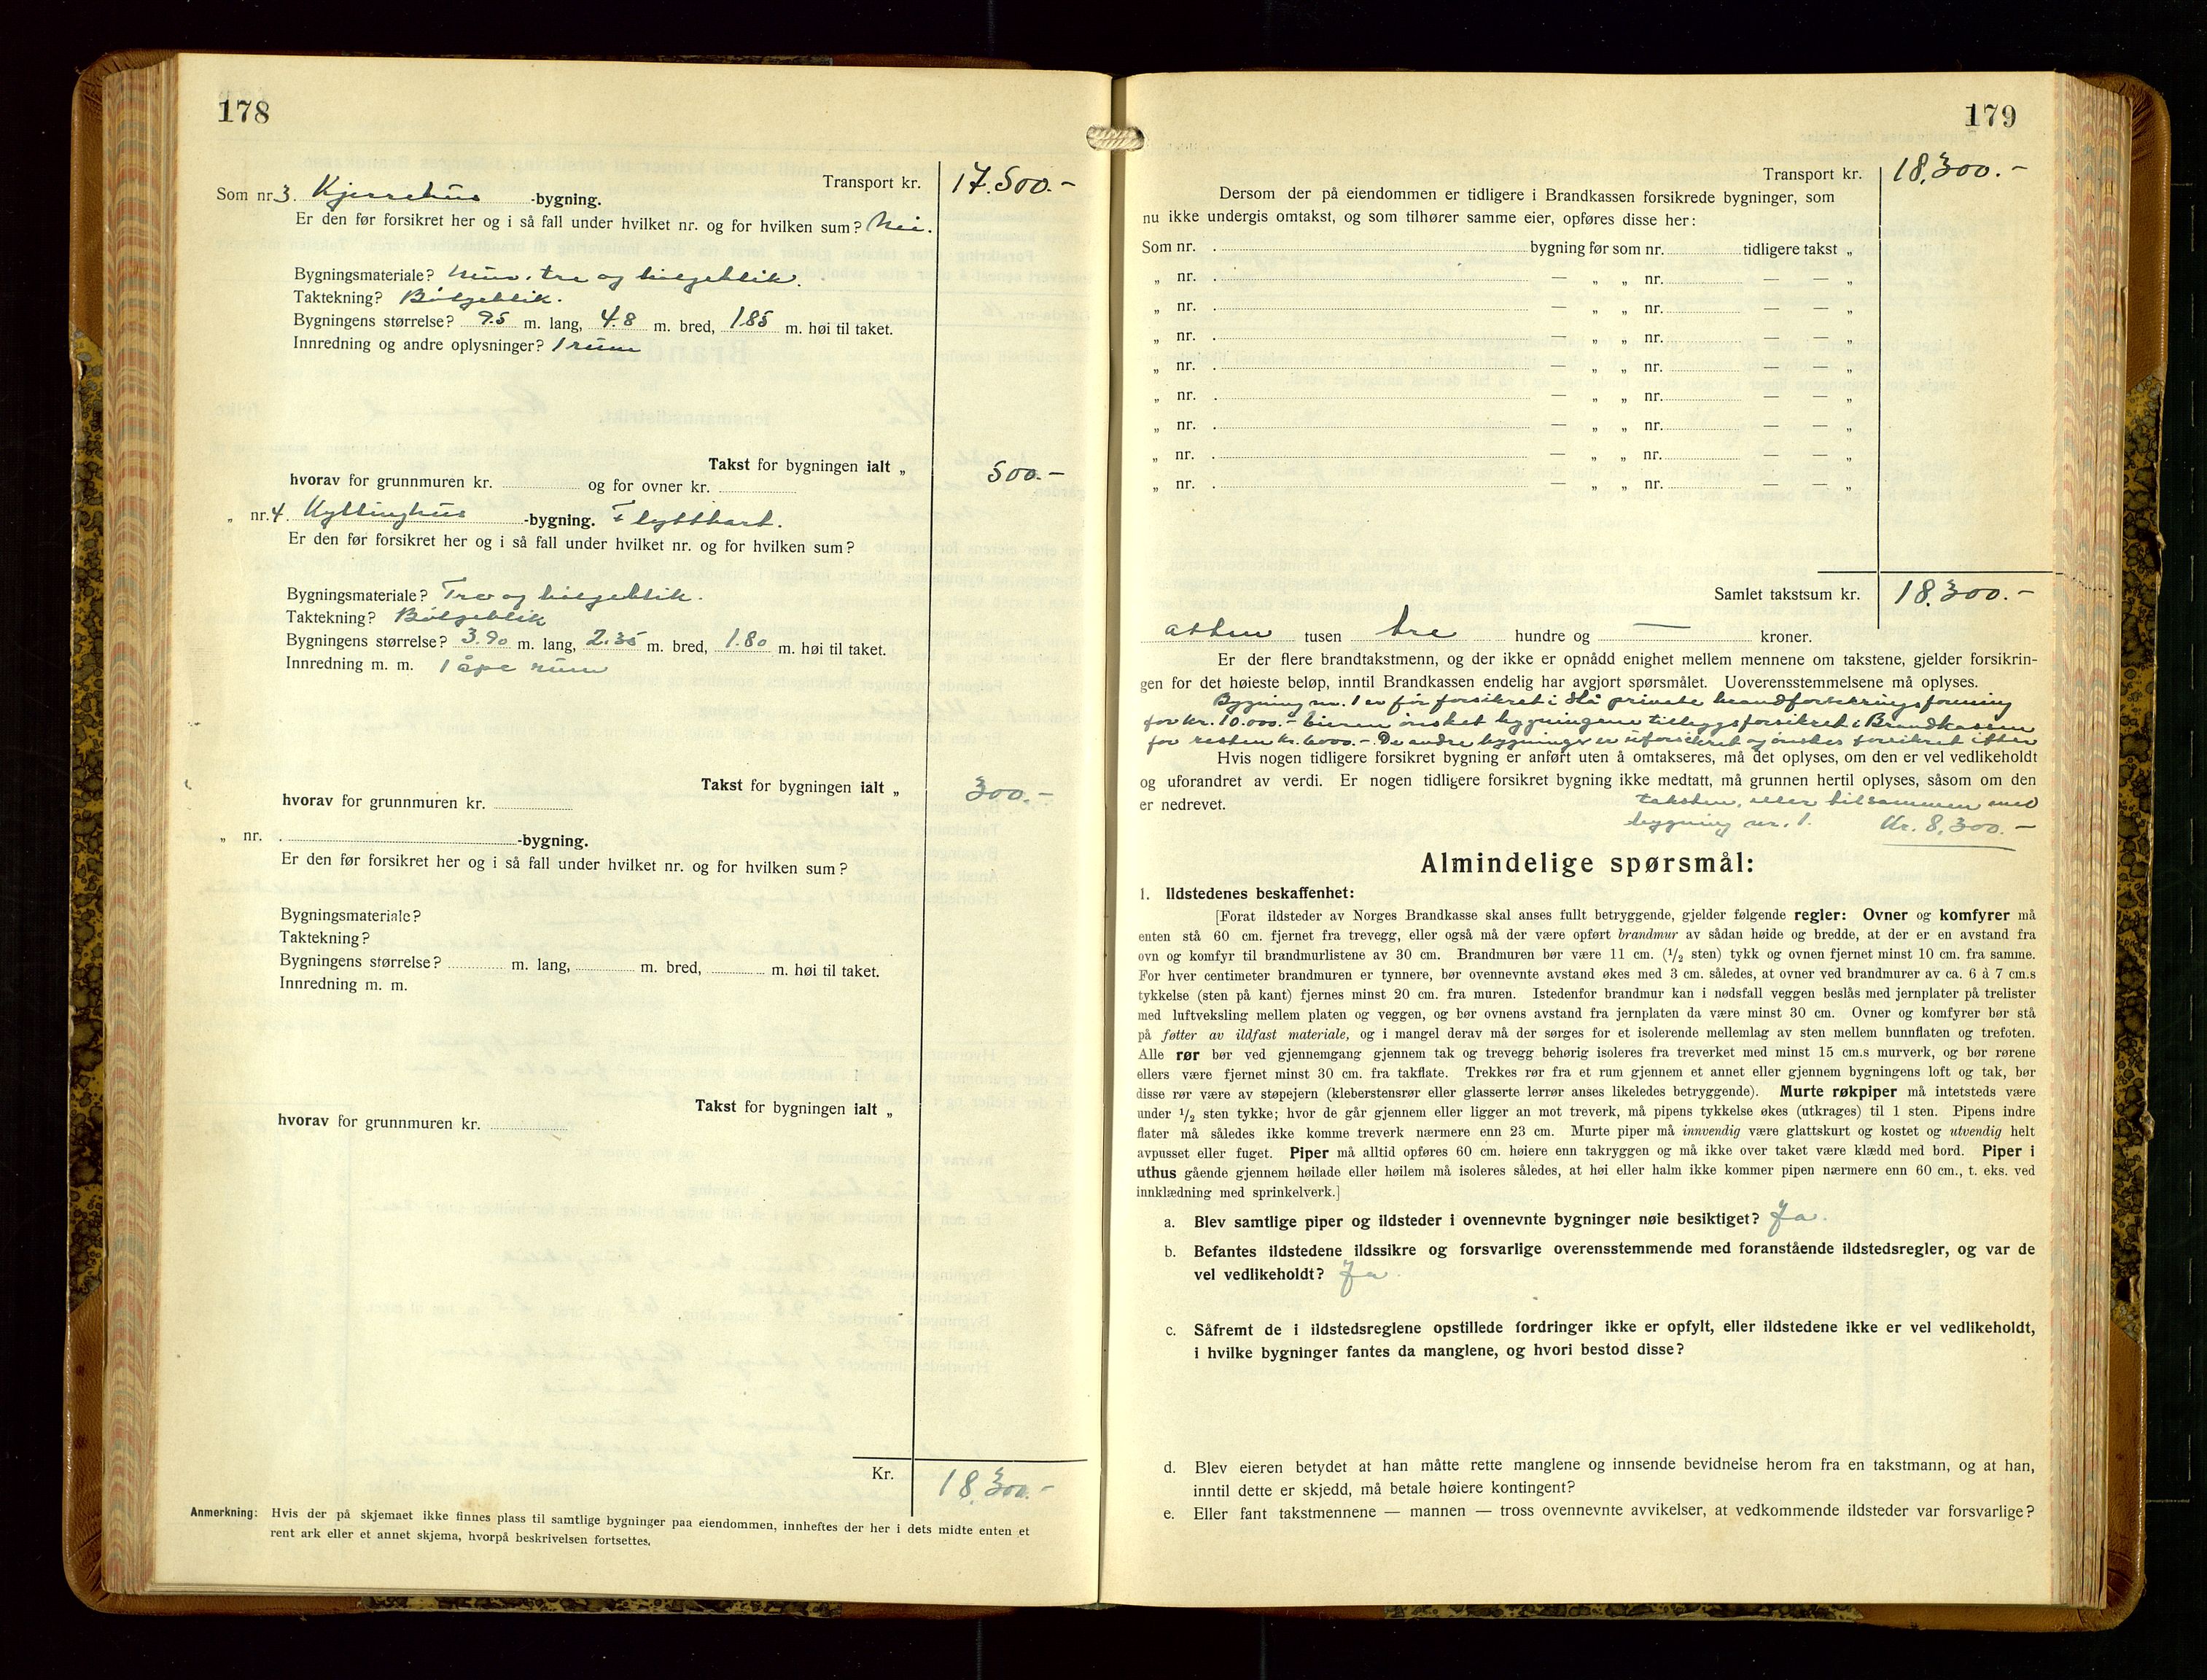 178
Transport kr. 17.500.-
Som nr. 3. Kjerrehus -bygning.
Er den før forsikret her og i så fall under hvilket nr. og for hvilken sum? Nei.
Bygningsmateriale? Mur, tre og bølgeblik.
Taktekning? Bølgeblik.
Bygningens størrelse? 9.5 m. lang, 4.8 m. bred, 1.85 m. høi til taket.
Innredning og andre oplysninger? 1 rum
Takst for bygningen ialt „ 500.-
hvorav for grunnmuren kr. og for ovner kr.
„ nr. 4. Kyllinghus -bygning. Flyttbart.
Er den før forsikret her og i så fall under hvilket nr. og for hvilken sum?
Bygningsmateriale? Tre og bølgeblik.
Taktekning? Bølgeblik
Bygningens størrelse? 3.90 m. lang, 2.35 m. bred, 1.80 m. høi til taket.
Innredning m. m. 1 åpe rum
Takst for bygningen ialt „ 300.-
hvorav for grunnmuren kr.
„ nr. . -bygning.
Er den før forsikret her og i så fall under hvilket nr. og for hvilken sum?
Bygningsmateriale?
Taktekning?
Bygningens størrelse? m. lang, m. bred, m. høi til taket.
Innredning m. m.
Takst for bygningen ialt „
hvorav for grunnmuren kr.
Kr. 18.300.-
Anmerkning: Hvis der på skjemaet ikke finnes plass til samtlige bygninger paa eiendommen, innheftes der her i dets midte enten et
rent ark eller et annet skjema, hvorpå beskrivelsen fortsettes.
179
Transport kr. 18,300.-
Dersom der på eiendommen er tidligere i Brandkassen forsikrede bygninger, som
nu ikke undergis omtakst, og som tilhører samme eier, opføres disse her:
Som nr. . bygning før som nr. tidligere takst „
„ nr. . — „ „ nr. — — „
„ nr. . — „ „ nr. — — „
„ nr. . — „ „ nr. — — „
„ nr. . — „ „ nr. — — „
„ nr. . — „ „ nr. — — „
„ nr. . — „ „ nr. — — „
„ nr. . — „ „ nr. — — „
„ nr. . — „ „ nr. — — „
Samlet takstsum kr. 18.300.-
atten tusen tre hundre og — kroner.
Er der flere brandtakstmenn, og der ikke er opnådd enighet mellem mennene om takstene, gjelder forsikrin-
gen for det høieste beløp, inntil Brandkassen endelig har avgjort spørsmålet. Uoverensstemmelsene må oplyses.
Bygning nr. 1 er før forsikret i Hå private brandforsikringsforening
for kr. 10.000.- Eieren ønsket bygningene tilleggsforsikret i Brandkassen
for resten kr. 6000.- De andre bygninger er uforsikret og ønskes forsikret efter
Hvis nogen tidligere forsikret bygning er anført uten å omtakseres, må det oplyses, om den er vel vedlikeholdt
og uforandret av verdi. Er nogen tidligere forsikret bygning ikke medtatt, må grunnen hertil oplyses, såsom om den
er nedrevet.
taksten, eller tilsammen med
bygning nr. 1. Kr. 8,300.-
Almindelige spørsmål:
1. Ildstedenes beskaffenhet:
[Forat ildsteder av Norges Brandkasse skal anses fullt betryggende, gjelder følgende regler: Ovner og komfyrer må
enten stå 60 cm. fjernet fra trevegg, eller også må der være opført brandmur av sådan høide og bredde, at der er en avstand fra
ovn og komfyr til brandmurlistene av 30 cm. Brandmuren bør være 11 cm. (1/2 sten) tykk og ovnen fjernet minst 10 cm. fra samme.
For hver centimeter brandmuren er tynnere, bør ovennevnte avstand økes med 3 cm. således, at ovner ved brandmurer av ca. 6 à 7 cm.s
tykkelse (sten på kant) fjernes minst 20 cm. fra muren. Istedenfor brandmur kan i nødsfall veggen beslås med jernplater på trelister
med luftveksling mellem platen og veggen, og bør ovnens avstand fra jernplaten da være minst 30 cm. Ovner og komfyrer bør stå
på føtter av ildfast materiale, og i mangel derav må der sørges for et isolerende mellemlag av sten mellem bunnflaten og trefoten.
Alle rør bør ved gjennemgang gjennem tak og trevegg behørig isoleres fra treverket med minst 15 cm.s murverk, og bør rørene
ellers være fjernet minst 30 cm. fra takflate. Trekkes rør fra et rum gjennem et annet eller gjennem bygningens loft og tak, bør
disse rør være av støpejern (kleberstensrør eller glasserte lerrør anses likeledes betryggende). Murte røkpiper må intetsteds være
under 1/2 sten tykke; hvor de går gjennem eller ligger an mot treverk, må pipens tykkelse økes (utkrages) til 1 sten. Pipens indre
flater må således ikke komme treverk nærmere enn 23 cm. Murte piper må innvendig være glattskurt og kostet og utvendig helt
avpusset eller fuget. Piper må alltid opføres 60 cm. høiere enn takryggen og må ikke over taket være klædd med bord. Piper i
uthus gående gjennem høilade eller høilem må isoleres således, at høi eller halm ikke kommer pipen nærmere enn 60 cm., t. eks. ved
innklædning med sprinkelverk.]
a. Blev samtlige piper og ildsteder i ovennevnte bygninger nøie besiktiget? Ja.
b. Befantes ildstedene ildssikre og forsvarlige overensstemmende med foranstående ildstedsregler, og var de
vel vedlikeholdt? Ja.
c. Såfremt de i ildstedsreglene opstillede fordringer ikke er opfylt, eller ildstedene ikke er vel vedlikeholdt,
i hvilke bygninger fantes da manglene, og hvori bestod disse?
d. Blev eieren betydet at han måtte rette manglene og innsende bevidnelse herom fra en takstmann, og at han,
inntil dette er skjedd, må betale høiere kontingent?
e. Eller fant takstmennene — mannen — tross ovennevnte avvikelser, at vedkommende ildsteder var forsvarlige?